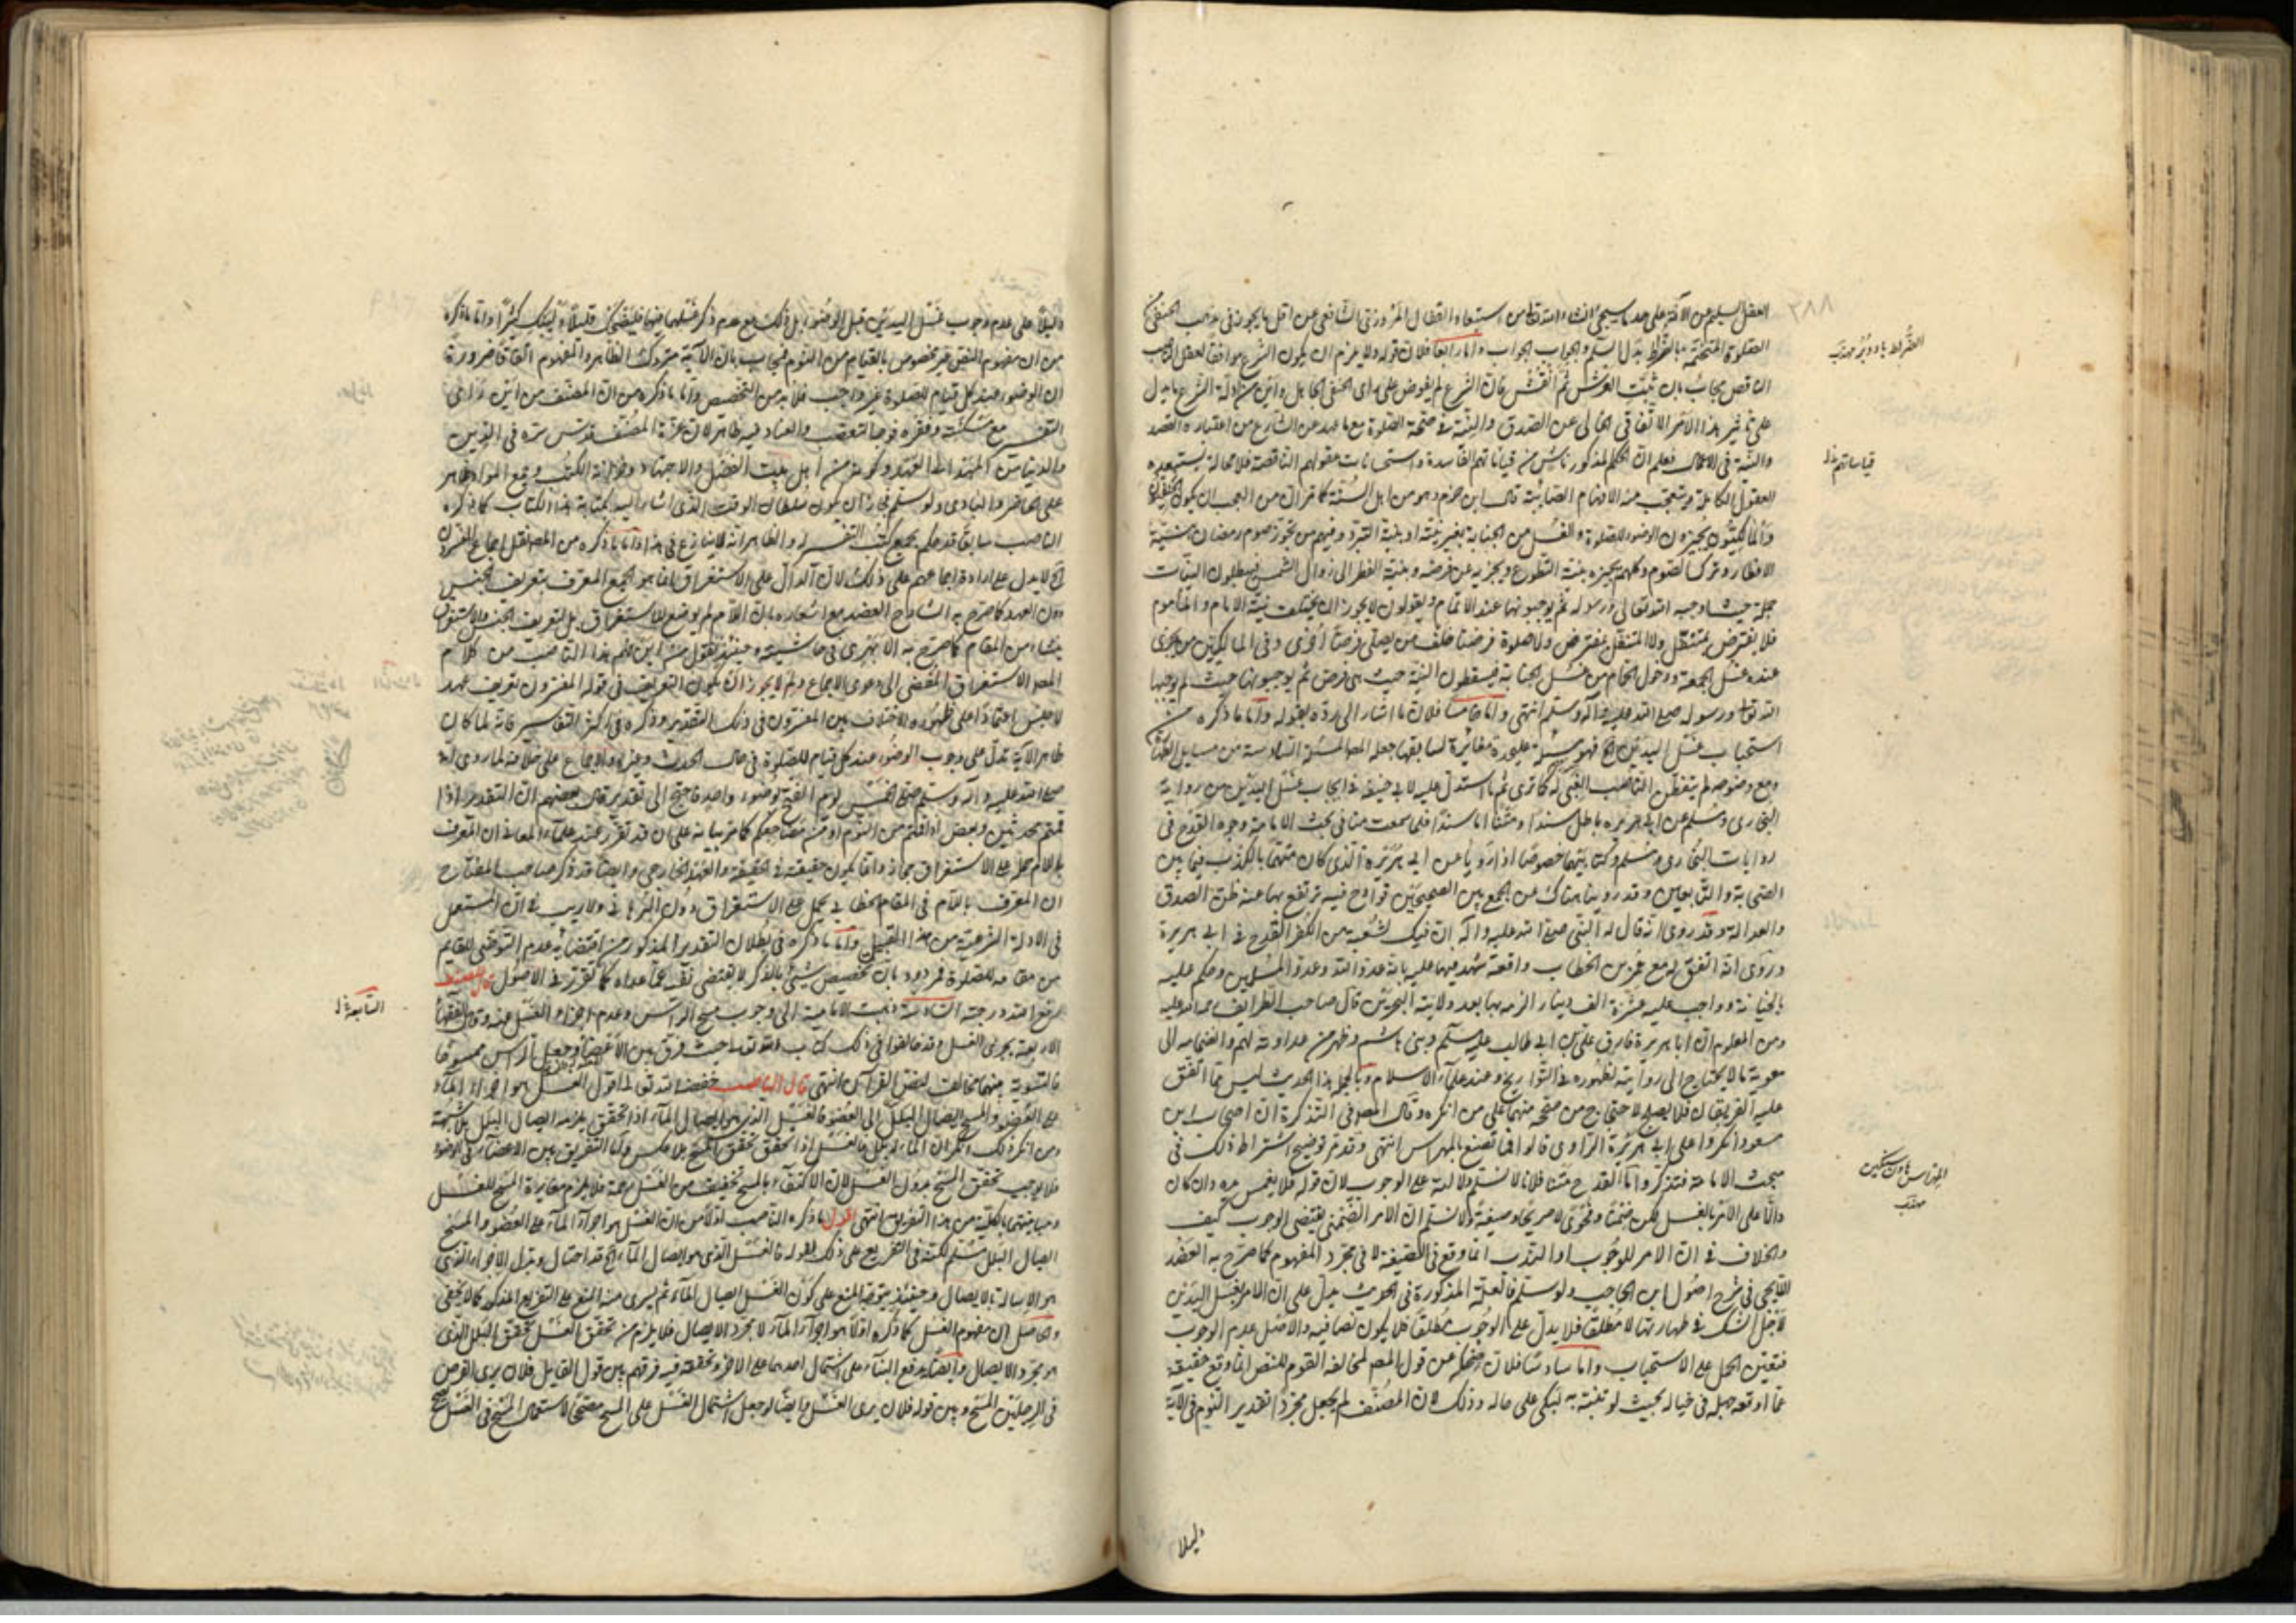 ٢٨٨
العقل السليم عن الآفة على حد ما سيجئ انشاء الله تعالى من استبعاد القفال المروزي الشافعي عن اقل ما يجوز في مذهب الحنفي من
الصلوة المتضمنة بالضراط بدل السلم والجواب الجواب واما رابعا فلان قوله ولا يلزم ان يكون الشرع موافقا لعقل الناصب
الناقص مجاب بان ثبت العرش ثم انقش فان الشرع لم يفوض على راى الحنفي الجاهل واين من ادلة الشرع ما يدل
على تأثير هذا الامر الاتفاقي الخالي عن الصدق والنية في صحة الصلوة مع ما عهد من الشارع من اعتباره القصد
والنية في الاعمال فعلم ان الحكم المذكور ناش من قياساتهم الفاسدة واستحسانات عقولهم الناقصة فلا محالة يستبعده
العقول الكاملة ويتعجب منه الافهام الصائبة قال ابن حزم وهو من اهل السنة كما مر ان من العجب ان يكون الحنفيون
والمالكيون يجيزون الوضوء للصلوة والغسل من الجنابة بغير نية او بنية التبرد وفيهم من يجوز صوم رمضان بنية
الافطار وترك الصوم وكلهم يجيزه بنية التطوع ويجزيه عن فرضه وبنية الفطر الى زوال الشمس فيبطلون النيات
جملة حيث اوجبه الله تعالى ورسوله ثم يوجبونها عند الاتمام ويقولون لا يجوز ان يختلف نية الامام والمأموم
فلا يفترض بمتنفل ولا المتنفل بمفترض ولا صلوة فرضنا خلف من يصلى فرضا اخرى وفي المالكيين من يجزى
عنده غسل الجمعة ودخول الحمام من غسل الجنابة فيسقطون النية حيث هي فرض ثم يوجبونها حيث لم يوجبها
الله تعالى ورسوله صلى الله عليه وآله وسلم انتهى واما خامسا فلان ما اشار الى رده بقوله واما ما ذكره من
استحباب غسل اليدين الخ فهو مسئلة عليحدة مغائرة لسابقها جعله المص المسئلة السادسة من مسايل الطهارة
ومع وضوحه لم يتفطن الناصب الغبي له كما ترى ثم ما استدل عليه لابي حنيفة في ايجاب غسل اليدين من رواية
البخارى ومسلم عن ابي هريره باطل سندا ومتنا اما سندا فلما سمعت منا في بحث الامامة وجوه القدح في
روايات البخارى ومسلم وكتابيهما خصوصا اذا رويا عن ابي هريره الذى كان متهما بالكذب فيما بين
الصحابة والتابعين وقد روينا هناك عن الجمع بين الصحيحين قوادح فيه ترتفع بها عنه ظن الصدق
والعدالة وقد روى انه قال له النبي صلى الله عليه وآله ان فيك لشعبة من الكفر القدح في ابي هريرة
وروى انه اتفق له مع عمر بن الخطاب واقعة شهد فيها عليه بانه عدو الله وعدو المسلمين وحكم عليه
بالخيانة وواجب عليه عشرة الف دينار الزمه بها بعد ولايته البحرين قال صاحب الطرايف رحمة الله عليه
ومن المعلوم ان ابا هريرة فارق على بن ابي طالب عليه السلم وبني هاشم وظهر من عداوته لهم وانضمامه الى
معوية ما لا يحتاج الى رواية لظهوره في التواريخ وعند علماء الاسلام وبالجملة هذا الحديث ليس مما اتفق
عليه الفريقان فلا يصلح لاحتجاج من صححه منهما على من انكره وقال المص في التذكرة ان اصحاب ابن
مسعود انكروا على ابي هريرة الراوى قالوا فما تصنع بالمهراس انتهى وقد مر توضيح اشتراط ذلك في
مبحث الامامة فتذكر واما القدح متنا فلانا لا نسلم دلالته على الوجوب لان قوله فلا يغمس يده وان كان
دالا على الامر بالغسل لكن ضمنا وفحوى لا صريحا وصيغة ولا نسلم ان الامر الضمني يقتضى الوجوب كيف
والخلاف في ان الامر للوجوب او الندب انما وقع في الصيغة لا في مجرد المفهوم كما صرح به العضد
الايجي في شرح اصول ابن الحاجب ولو سلم فالعلة المذكورة في الحديث يدل على ان الامر بغسل اليدين
لاجل الشك في طهارتها لا مطلقا فلا يدل على الوجوب مطلقا فلا يكون نصا فيه والاصل عدم الوجوب
فتعين الحمل على الاستحباب واما سادسا فلان ضحكه عن قول المص لمخالفه القوم للنص انما وقع حقيقة
عما اوقعه جهله في خياله بحيث لو تنبه به لبكى على حاله وذلك لان المصنف لم يجعل مجرد تقدير النوم في الآية
دليلا
الضراط باد
قياساتهم ظ
المهراس هاون سنگين
مهذب
دليلا على عدم وجوب غسل اليدين قبل الوضوء بل ذلك مع عدم ذكر غسلهما فيها فليضحك قليلا وليبك كثيرا واما ما ذكره
من ان مفهوم النص غير مخصوص بالقيام من النوم فيجاب بان الآية متروك الظاهر والمفهوم اتفاقا ضرورة
ان الوضوء عند كل قيام للصلوة غير واجب فلا بد من التخصص واما ما ذكره من ان المصنف من اين راى
التفسير مع مسكنته وفقره فوجه التعصب والعناد فيه ظاهر لان عزة المصنف قدس سره في الدين
والدنيا من المهد الى العهد وكونه من اهل بيت الفضل والاجتهاد وخزانة الكتب وجمع المواد ظاهر
على الحاضر والبادى ولو سلم فيجوز ان يكون سلطان الوقت الذى اشار اليه بكتابة هذا الكتاب كما ذكره
الناصب سابقا قد حكم بجمع كتب التفسير له والظاهر انه لا ينازع في هذا واما ما ذكره من المص نقل اجماع المفسرين
الخ لا يدل على ارادة اجماعهم على ذلك لان الدال على الاستغراق انما هو الجمع المعرف بتعريف الجنس
دون العهد كما صرح به الشارح العضد مع اشعاره بان اللام لم يوضع للاستغراق بل لتعريف الجنس والاستغراق
ينشاء من المقام كما صرح به الابهرى في حاشيته وحينئذ نقول من اين فهم هذا الناصب من كلام
المص الاستغراق المفضى الى دعوى الاجماع ولم لا يجوز ان يكون التعريف في قوله المفسرون لتعريف عهد
لا جنس اعتمادا على ظهور الاختلاف بين المفسرون في ذلك التقدير وذكره في اكثر التفاسير فانه لما كان
ظاهر الآية تدل على وجوب الوضوء عند كل قيام للصلوة في حال الحدث وغيره والاجماع على خلافه لما روى انه
صلى الله عليه وآله وسلم صلى الخمس يوم الفتح بوضوء واحد فاحتيج الى تقدير قال بعضهم ان التقدير اذا
قمتم محدثين وبعض اذا قمتم من النوم او من مضاجعكم كما مر بيانه على ان قد تقرر عند علماء المعاني ان المعرف
باللام حمله على الاستغراق مجاز وانما يكون حقيقة في الحقيقة والعهد الخارجي وايضا قد ذكر صاحب المفتاح
ان المعرف باللام في المقام الخطابي يحمل على الاستغراق دون البرهاني ولا ريب في ان المستعمل
في الادلة الشرعية من هذا القبيل واما ما ذكره في بطلان التقدير المذكور من اقتضائه عدم التوضى للقايم
من مقامه للصلوة فمردود بان تخصيص شئ بالذكر لا يقتضى نفيه عما عداه كما تقرر في الاصول قال المصنف
رفع الله درجته السادسة ذهبت الامامية الى وجوب مسح الراس وعدم اجزاء الغسل عنه وقال الفقهاء
الاربعة يجزى الغسل وقد خالفوا في ذلك كتاب الله تعالى حيث فرق بين الاعضاء وجعل الراس ممسوحا
فالتسوية بينهما مخالف لنص القرآن انتهى قال الناصب خفضه الله تعالى اقول الغسل هو اجراء الماء
على العضو والمسح ايصال البلل الى العضو فالغسل الذى هو ايصال الماء اذا تحقق يلزمه ايصال البلل بلا شبهة
ومن انكر ذلك انكر ان الماء له بلل فالغسل اذا تحقق تحقق المسح بلا عكس واما التفريق بين الاعضاء في الوضوء
فلا يوجب تحقق المسح بدون الغسل لان الاكتفاء بالمسح تخفيف من الغسل رحمة فلا يلزم مغايرة المسح للغسل
ومباينتها بالكلية من هذا التفريق انتهى اقول ما ذكره الناصب اولا من ان الغسل هو اجراء الماء على العضو والمسح
ايصال البلل مسلم لكنه في التفريع على ذلك بقوله فالغسل الذى هو ايصال الماء الخ قد احتال وبدل الاجراء الذى
هو الاسالة بالايصال وحينئذ يتوجه المنع على كون الغسل ايصال الماء ثم يسرى منه المنع على التفريع المذكور كما لا يخفى
والحاصل ان مفهوم الغسل كما ذكره اولا هو اجراء الماء لا مجرد الايصال فلا يلزم من تحقق الغسل تحقق البلل الذى
هو مجرد الايصال وايضا يدفع البناء على اشتمال احدهما على الآخر وتحققه فيه فرقهم بين قول القايل فلان يرى الفرض
في الرجلين المسح وبين قوله فلان يرى الغسل وايضا لو جعل اشتمال الغسل على المسح مصححا لاستعمال المسح في الغسل
السابعة ظ